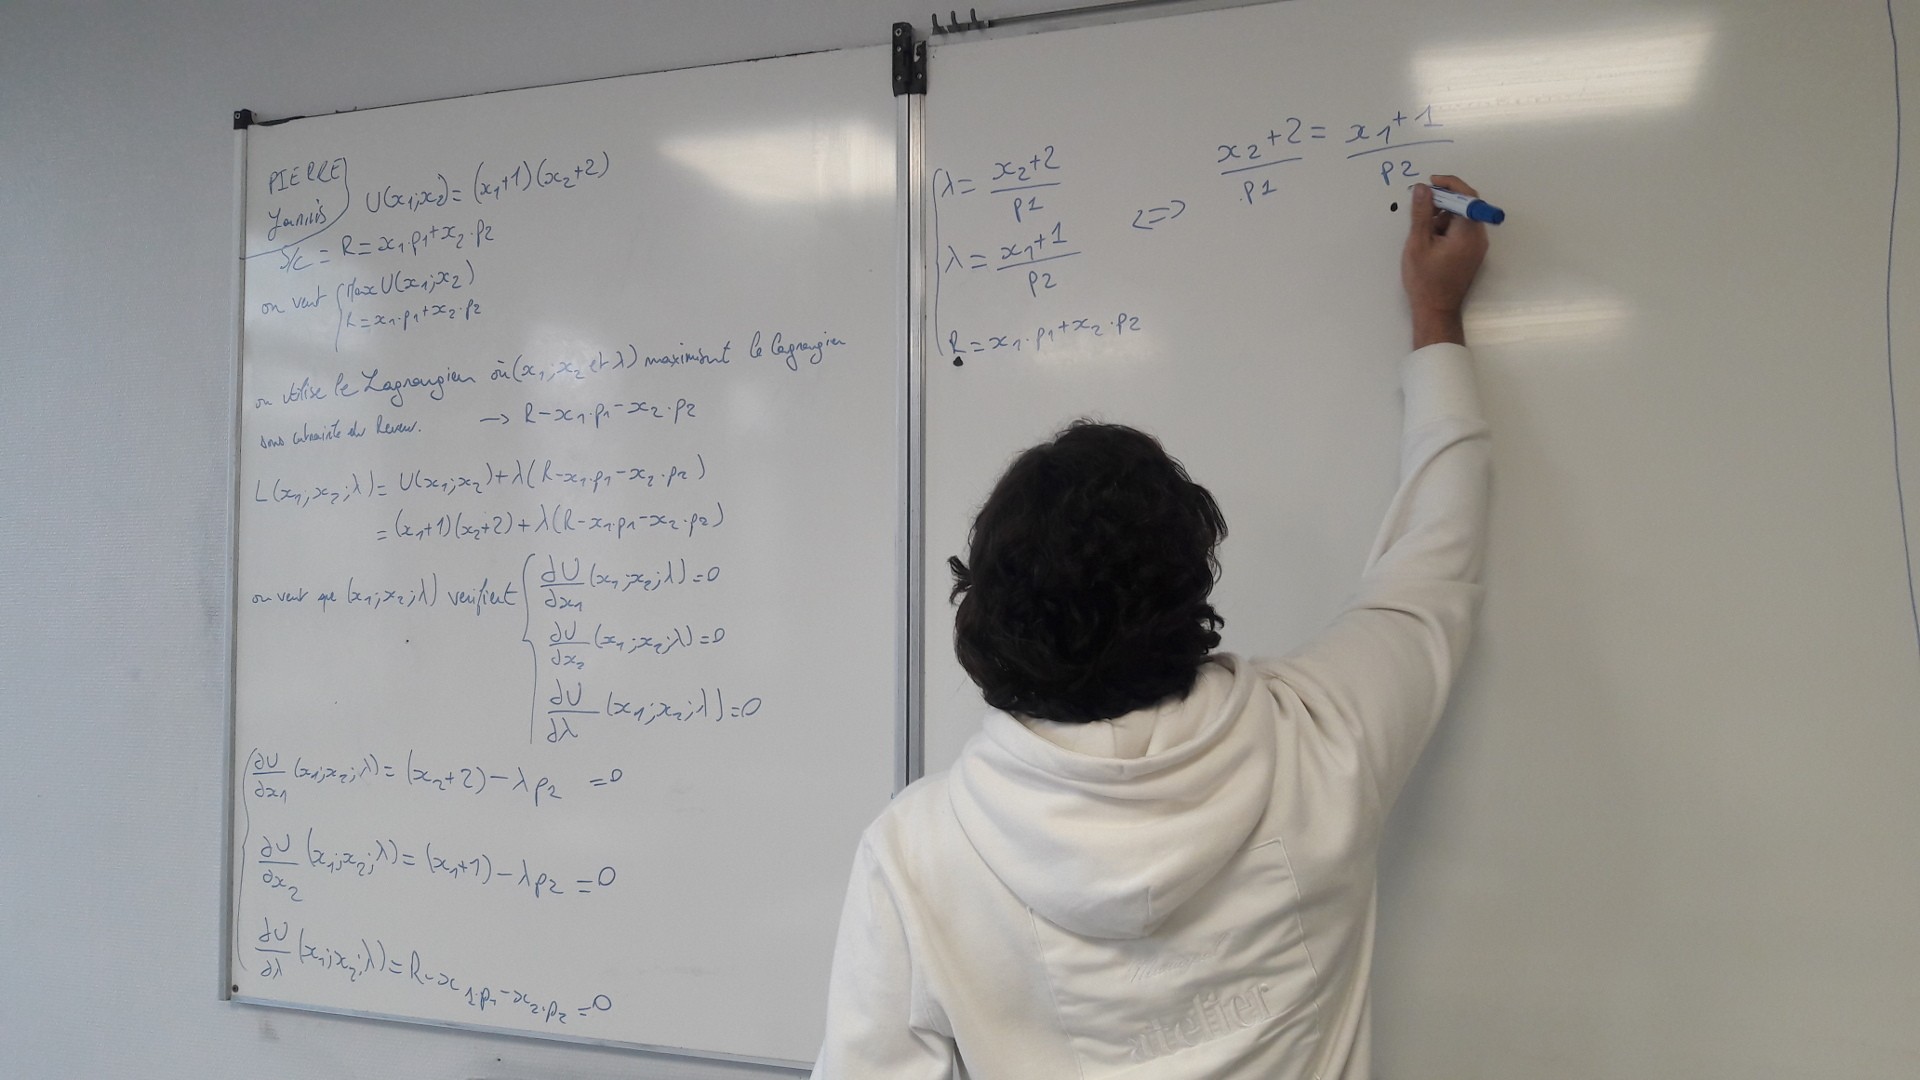 PIERRE
Yannis
U(x₁;x₂) = (x₁+1)(x₂+2)
S/c = R = x₁.p₁+x₂.p₂
on veut { Max U(x₁;x₂)
R = x₁.p₁+x₂.p₂
on utilise le Lagrangien où (x₁;x₂ et λ) maximisent le lagrangien
sous contrainte du Revenu. → R-x₁.p₁-x₂.p₂
L(x₁;x₂;λ) = U(x₁;x₂)+λ(R-x₁.p₁-x₂.p₂)
= (x₁+1)(x₂+2)+λ(R-x₁.p₁-x₂.p₂)
on veut que (x₁;x₂;λ) verifient { ∂U/∂x₁ (x₁;x₂;λ) = 0
∂U/∂x₂ (x₁;x₂;λ) = 0
∂U/∂λ (x₁;x₂;λ) = 0
∂U/∂x₁ (x₁;x₂;λ) = (x₂+2) - λp₂ = 0
∂U/∂x₂ (x₁;x₂;λ) = (x₁+1) - λp₂ = 0
∂U/∂λ (x₁;x₂;λ) = R-x₁.p₁-x₂.p₂ = 0
{ λ = x₂+2/p1
λ = x₁+1/p2
R = x₁.p₁+x₂.p₂
<=> x₂+2/p1 = x₁+1/p2
atelier